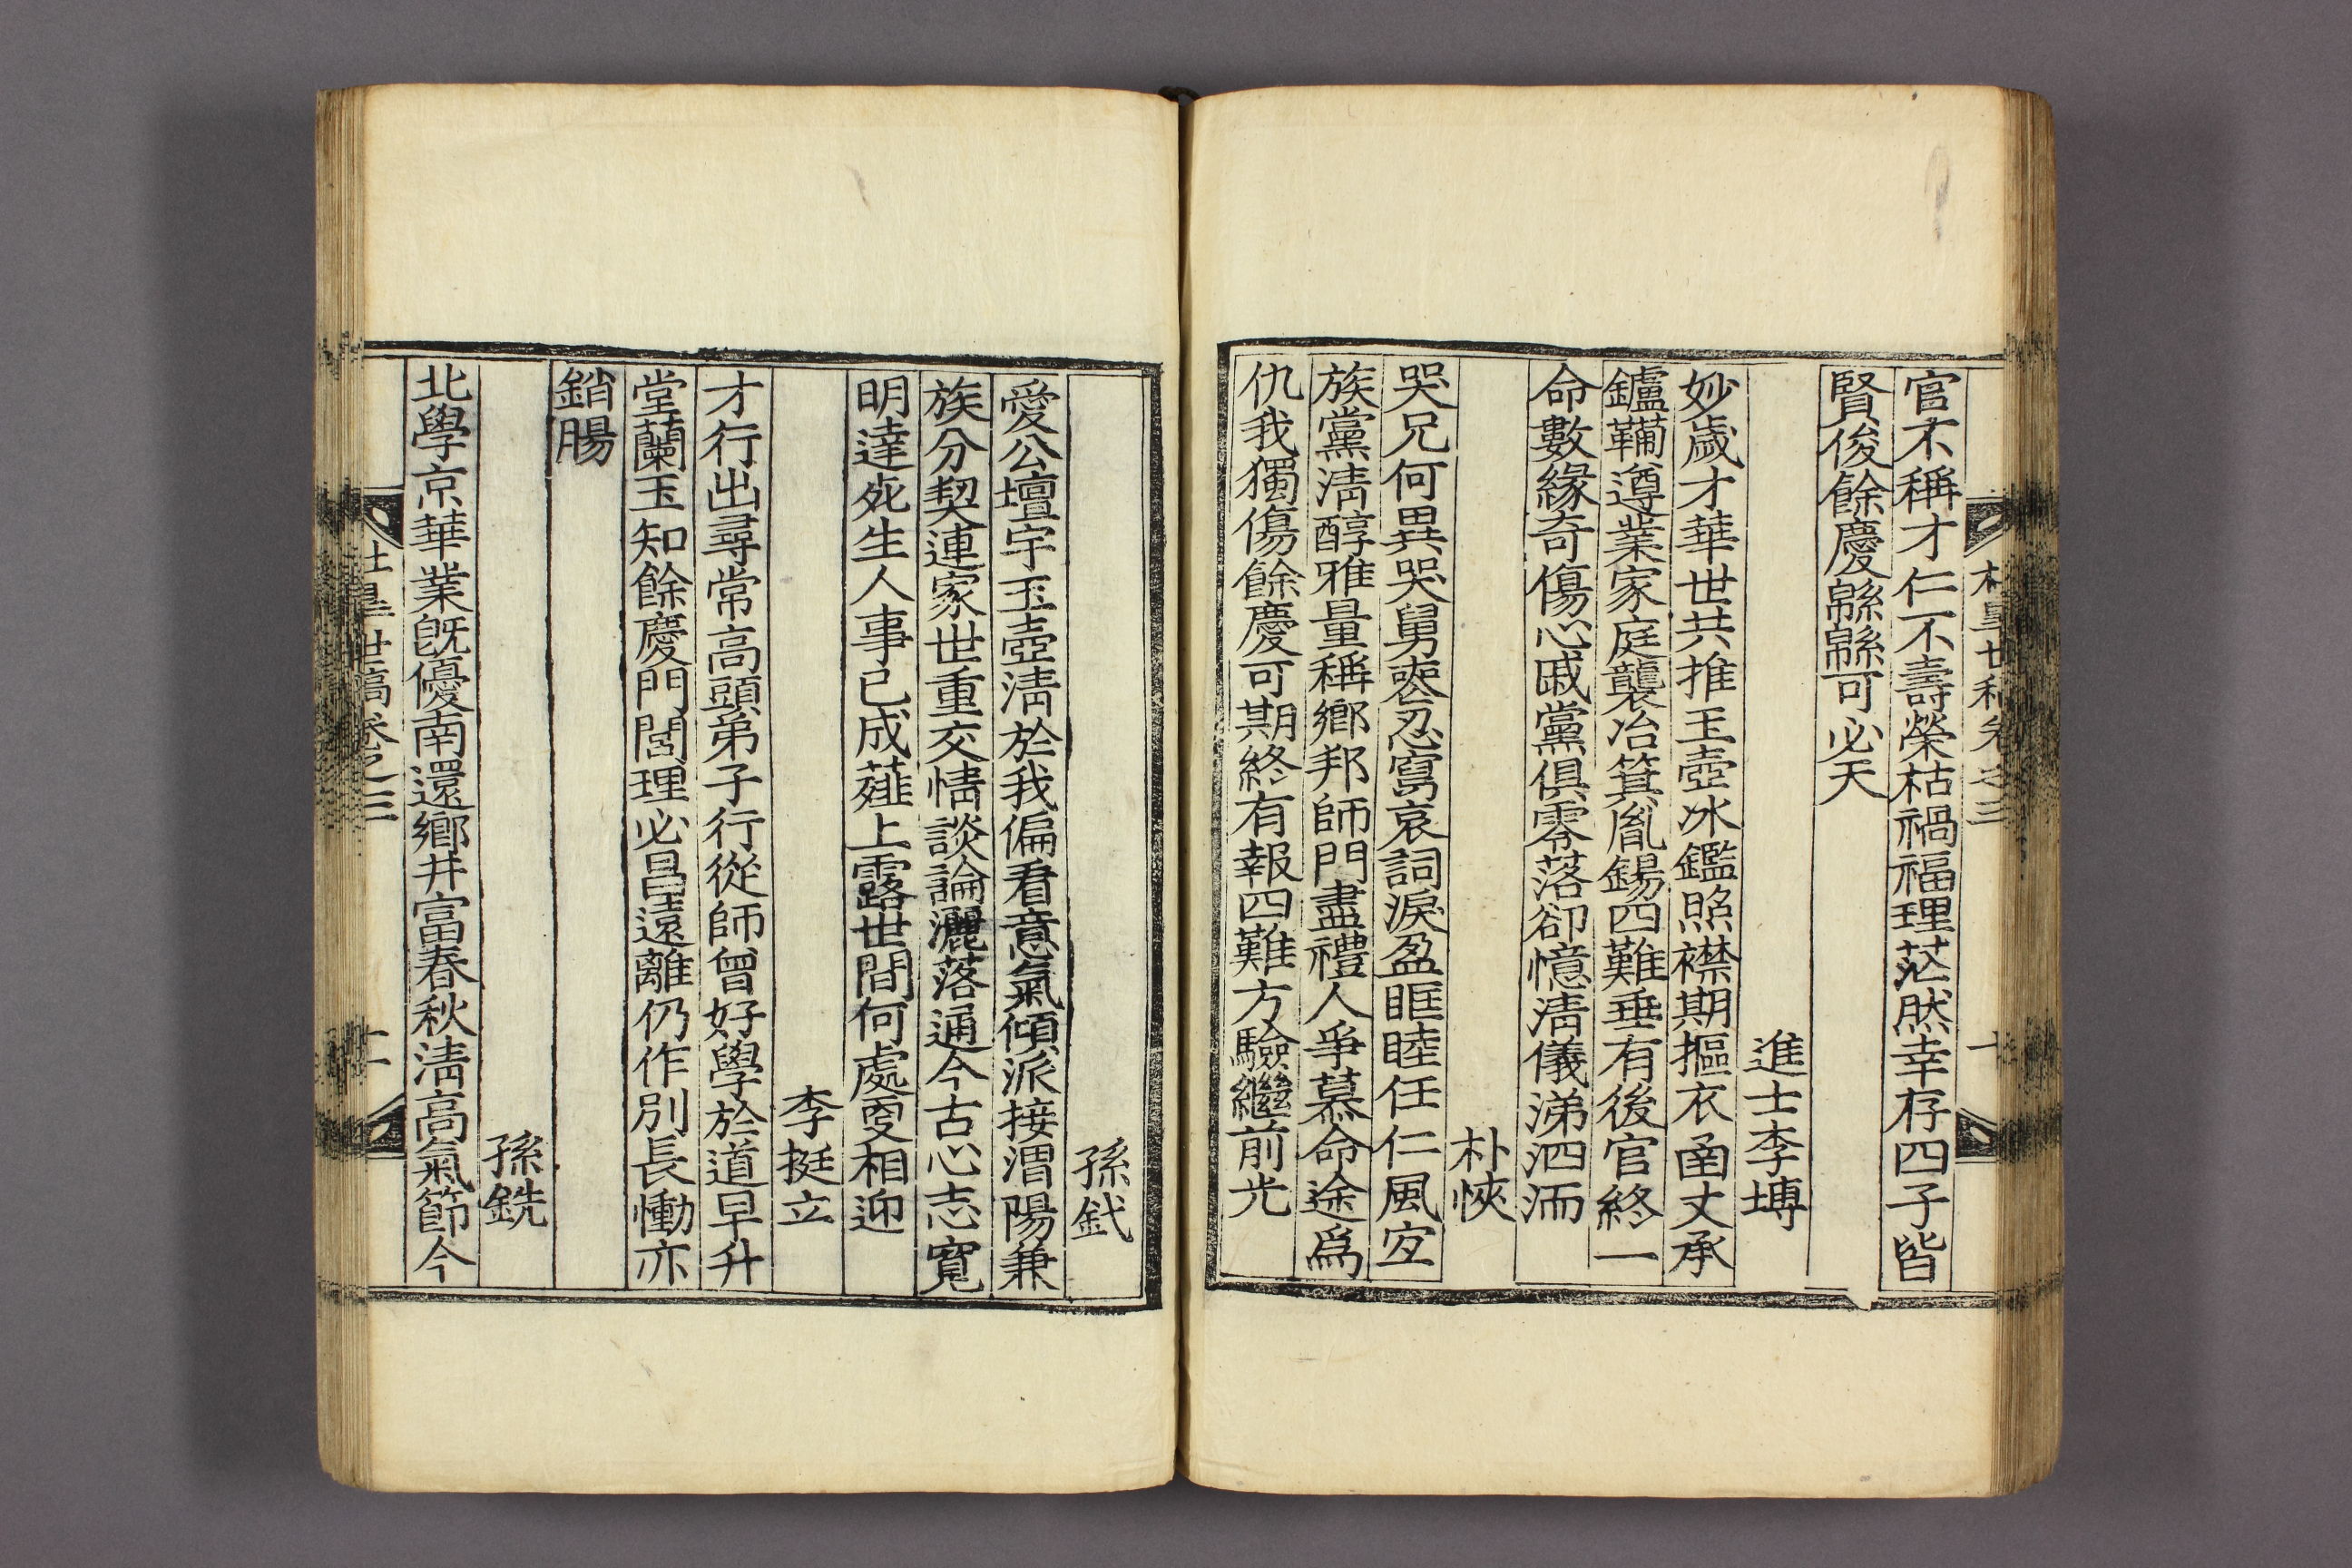 官不稱才仁不壽榮枯禍福理茫然幸存四子皆
賢俊餘慶緜緜可必天
進士李塼
妙歲才華世共推玉壺冰鑑照襟期摳衣函丈承
鑪鞴遵業家庭襲冶箕胤錫四難垂有後官終一
命數緣奇傷心戚黨俱零落卻憶淸儀涕泗洏
朴悏
哭兄何異哭舅喪忍寫哀詞淚盈眶睦任仁風宜
族黨淸醇雅量稱鄕邦師門盡禮人爭慕命途爲
仇我獨傷餘慶可期終有報四難方驗繼前光
孫釴
愛公壇宇玉壺淸於我偏看意氣傾派接渭陽兼
族分契連家世重交情談論灑落通今古心志寬
明達死生人事已成薤上露世間何處更相迎
李挺立
才行出尋常高頭弟子行從師曾好學於道早升
堂蘭玉知餘慶門閭理必昌遠離仍作別長慟亦
銷腸
孫銑
北學京華業旣優南還鄕井富春秋淸高氣節今
世稿卷之三